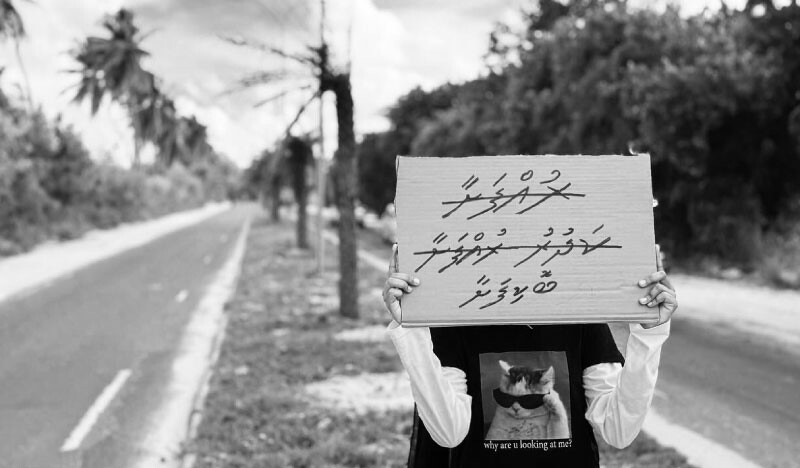 ރުއްފަނާ
ކަދުރު ރުއްފަނާ
ބޮކިފަނާ
why are u looking at me?